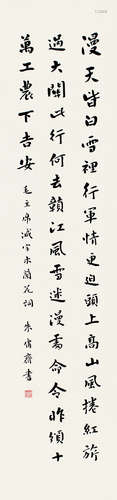 漫天皆白雪裡行軍情更迫頭上高山風捲紅旗
過大關此行何去贛江風雪迷漫處命令昨頒十
萬工農下吉安 毛主席減字木蘭花詞 朱 齋書